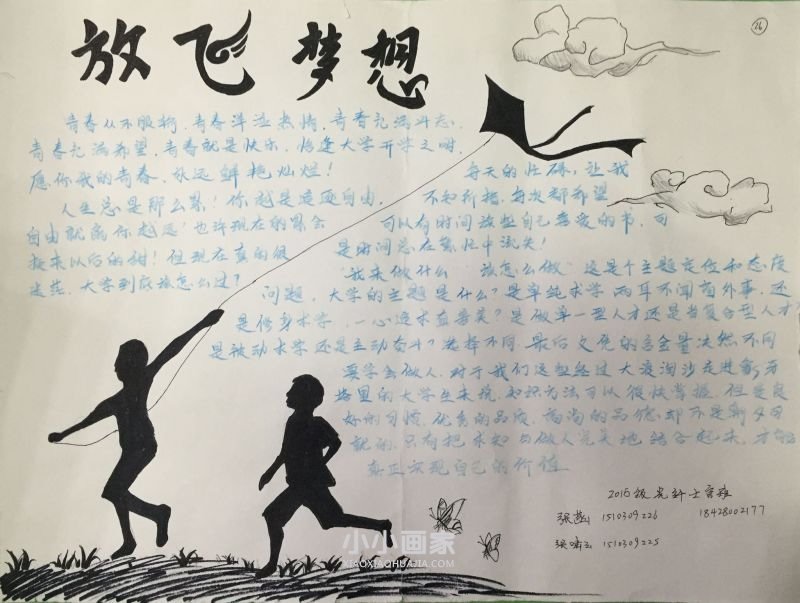 放飞梦想
26
青春从不服输,青春洋溢热情,青春充满斗志,
青春充满希望,青春就是快乐,恰逢大学开学之时,
愿你我的青春,永远鲜艳灿烂!
人生总是那么累!你越是追逐自由,
自由就离你越远!也许现在的累会
换来以后的甜!但现在真的很
迷茫,大学到底该怎么过?
每天的忙碌,让我
不知所措,每次都希望
可以有时间放整自己喜爱的书,可
是时间总在繁忙中流失!
"我来做什么 该怎么做"这是个主题定位和态度
问题,大学的主题是什么?是单纯求学 两耳不闻窗外事,还
是修身求学,一心追求真善美?是做单一型人才还是当复合型人才?
是被动求学还是主动奋斗?选择不同,最后文凭的含金量决然不同
要学会做人,对于我们这些经过大浪淘沙走进象牙
塔里的大学生来说,知识方法可以很快掌握,但是良
好的习惯,优秀的品质,高尚的品德却不是朝夕可
就的,只有把求知与做人完美地结合起来,才能
真正实现自己的价值
2015级光科土
张 1510309226 18428002177
张啸 1510309225
小小画家
XIAOXIAOHUAJIA.COM